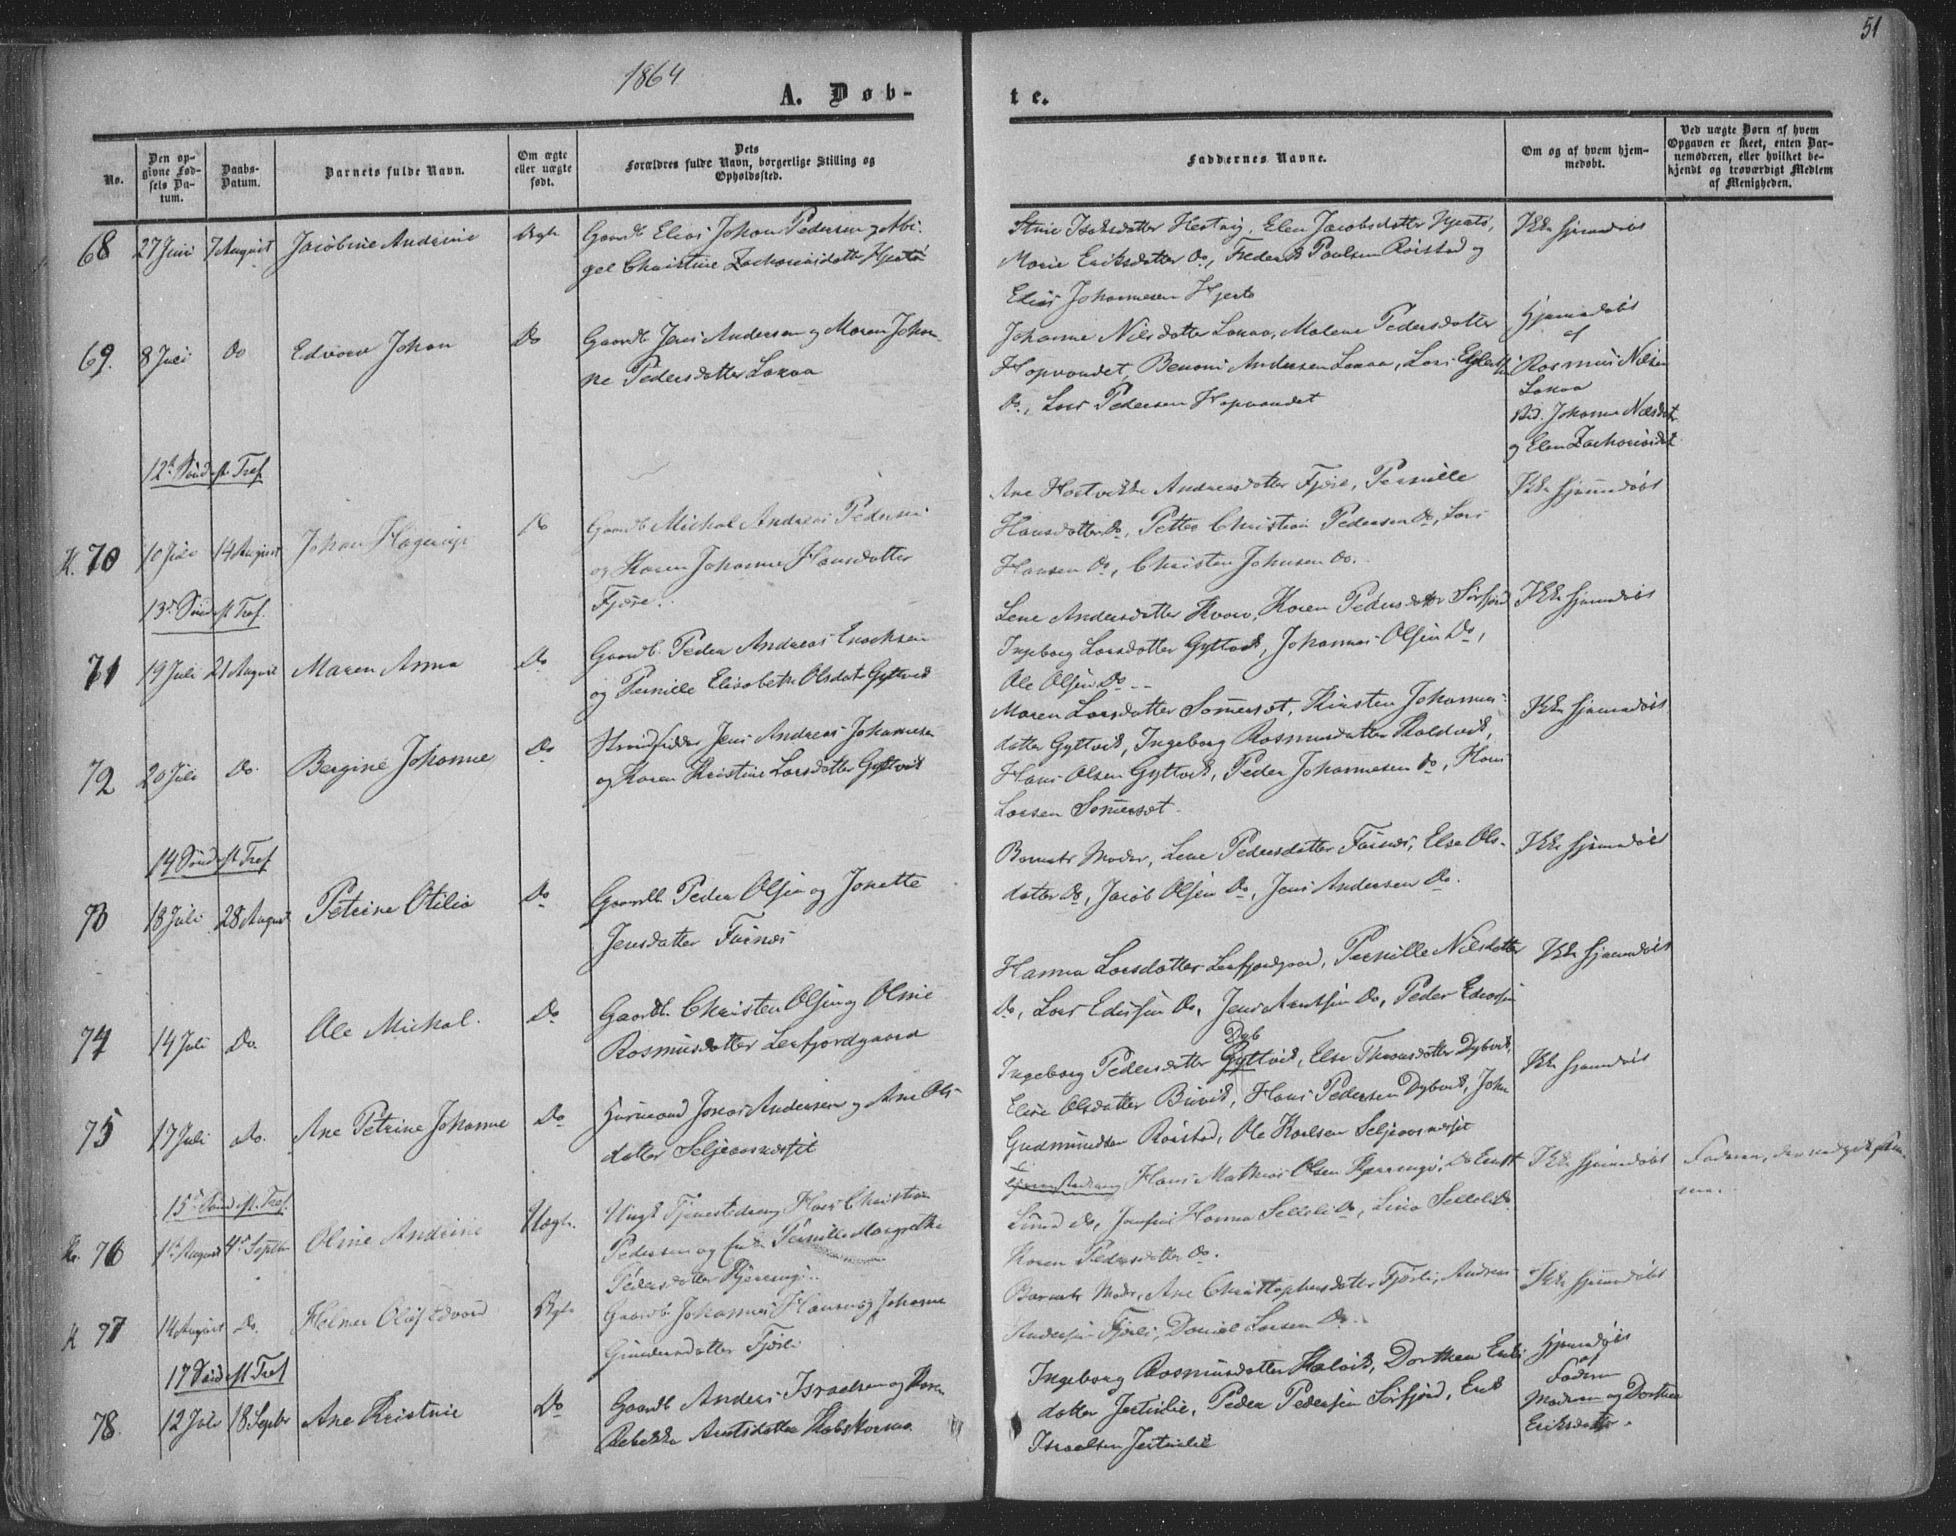 51
1864
A. Døb-
te.
No.
Den op-
givne Fød-
sels Da-
tum.
Daabs-
Datum.
Barnets fulde Navn.
Om ægte
eller uægte
født.
Dets
Forældres fulde Navn, borgerlige Stilling og
Opholdssted.
Faddernes Navne.
Om og af hvem hjem-
medøbt.
Ved uægte Børn af hvem
Opgaven er skeet, enten Bar-
nemoderen, eller hvilket be-
kjendt og troværdigt Medlem
af Menigheden.
68 27 Juni 7 August Jacobine Andrine Ægte Gaardb. Elias Johan Pedersen og Abi-
gel Christine Zachariasdatter Hjertø
Stine Isaksdatter Elen Jacobsdatter Hjertø,
Marie Eriksdatter Do, Frederik Paulsen Rørstad og
Elias Johannesen Hjertø
Ikke hjemmedøbt
69. 8 Juli Do Edvard Johan Do Gaardb Jens Andersen og Maren Johan-
ne Pedersdatter Laxaa
Johanne Nilsdatter Laxaa, Malene Pedersdatter
Hopvandet, Benoni Andersen Laxaa, Lars
Do, Lars Pedersen Hopvandet
Hjemmedøbt
af
Rasmus Nilsen
Laxaa
Johanna Nilsdat.
og Elen Zachariasdat.
12te Sønd eft Tref.
K. 70 10 Juli 14 August Johan Hagerup Do Gaardb Michal Andreas Pedersen
og Karen Johanne Hansdatter
Fjære.
Ane Andreasdatter Fjære, Pernille
Hansdatter Do, Petter Christian Pedersen Do, Lars
Hansen Do, Christen Johnsen Do.
Ikke hjemmedøbt
13de Sønd eft Tref.
71 19 Juli 21 August Maren Anna Do Gaardb. Peder Andreas Enochsen
og Pernille Elisabeth Olsdat Gyltvik
Lene Andersdatter Kvarv, Karen Pedersdatter Sørfjord
Ingeborg Larsdatter Gyltvik, Johannes Olsen Do,
Ole Olsen Do --
Ikke hjemmedøbt
72 20 Juli Do. Bergine Johanne Do Jens Andreas Johannesen
og Karen Kristine Larsdatter Gyltvik
Maren Larsdatter Sommerset, Kirsten Johannes-
datter Gyltvik, Ingeborg Rasmusdatter Kaldvik,
Hans Olsen Gyltvik, Peder Johannesen Do, Hans
Larsen Sommerset.
Ikke hjemmedøbt
14 Sønd eft Tref
73 18 Juli 28 August Petrine Otilia Do Gaardb. Peder Olsen og Jonette
Jensdatter Furnes
Barnets Moder, Lene Pedersdatter Furnes, Else Ols-
datter Do, Jacob Olsen Do, Jens Andersen Do.
Ikke hjemmedøbt
74 14 Juli Do. Ole Michal. Do Gaardb. Christen Olsen og Oline
Rasmusdatter Leirfjordgaard
Hanna Larsdatter Leirfjordgaard, Pernille Nilsdatter
Do, Lars Do, Jens Arntsen Do, Peder
Ikke hjemmedøbt
75 17 Juli Do. Ane Petrine Johanne Do Huusmand Jonas Andersen og Ane Ols-
datter Seljeaasnæset
Dyb
Ingeborg Pedersdatter Gyltvik, Else Thomasdatter Dybvik,
Elise Olsdatter Buvik, Hans Pedersen Dybvik, John
Gudmundsen Rørstad, Ole Karlsen Seljeaasnæset
Ikke hjemmedøbt
15de Sønd eft. Tref.
K. 76 1ste August 4de Septbr Oline Andrine Uægte. Ungk Tjenestedreng Hans Christian
Pedersen og Pernille Margrethe
Pedersdatter Kjerringø.
Hans Mathias Olsen Kjerringø, Do Ernst
Lund do, Hanna Do, Lina Do.
Karen Pedersdatter Do.
Ikke hjemmedøbt
Faderen,
77 14 August Do. Holmer Oluf Edvard Ægte Gaardb. Johannes Hansen og Johanna
Gundersdatter Fjære
Barnets Moder, Ane Christophersdatter Andreas
Andersen Daniel Larsen Do.
Ikke hjemmedøbt
17 Sønd eft Tref
78. 12 Juli 18 Septbr Ane Kristine Do Gaardb. Anders Israelsen og Karen
Rebekka Arntsdatter
Ingeborg Rasmusdatter Kalvik, Dorthea Eriks
datter Peder Pedersen Sørfjord, Erik
Israelsen
Hjemmedøbt
af
Faderen
Moderen og Dorthea
Eriksdatter.